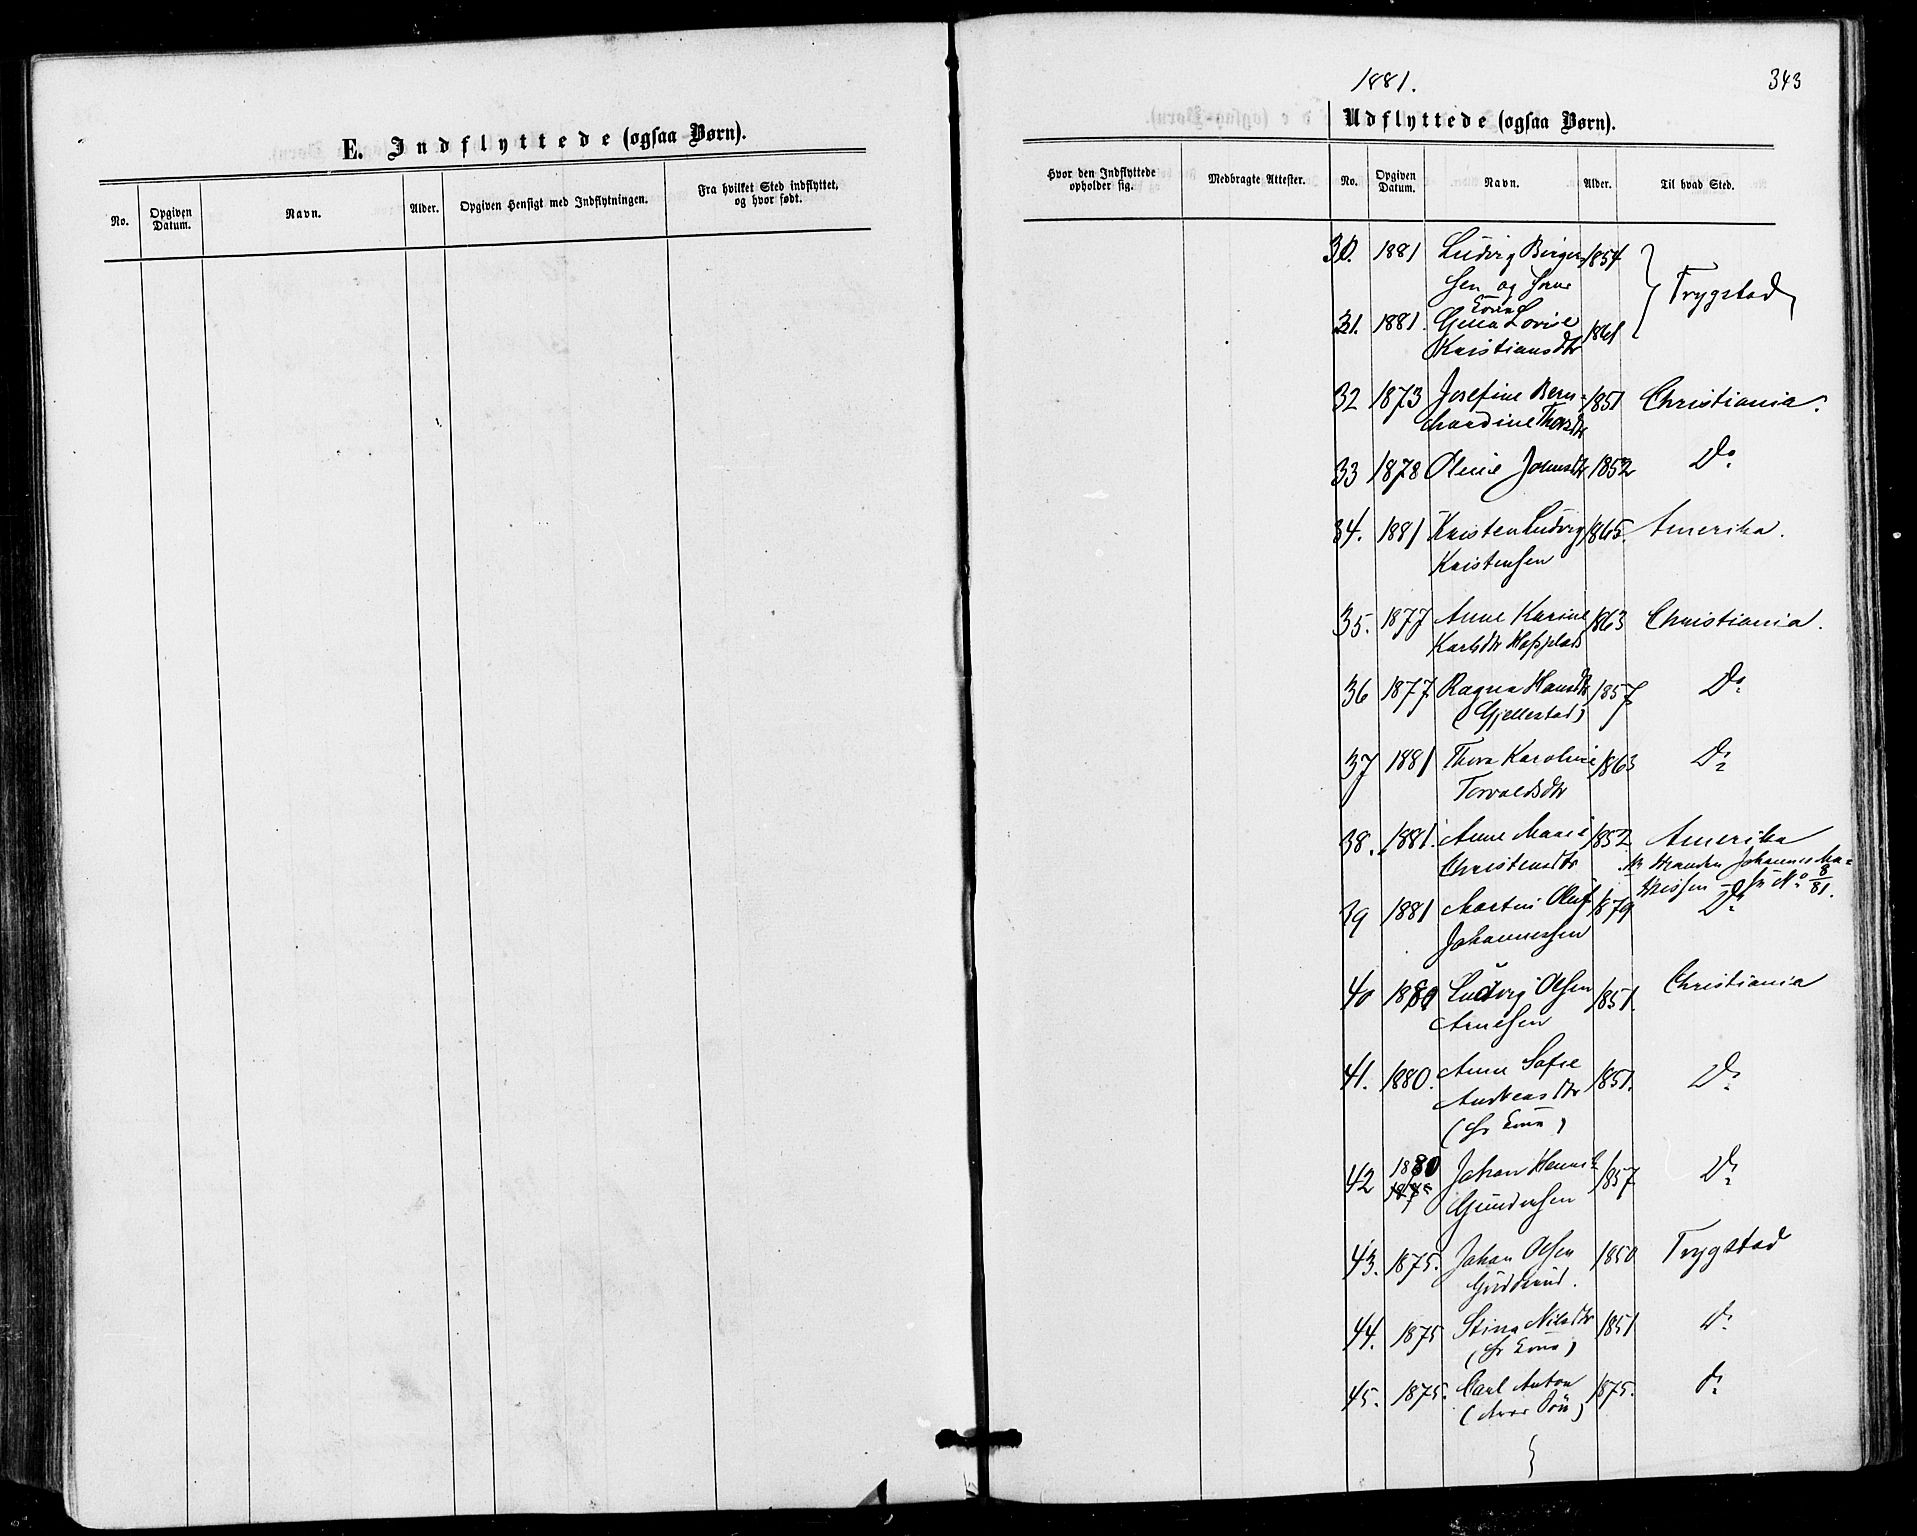 E. Indflyttede (ogsaa Børn).
No.
Opgiven Datum.
Navn.
Alder.
Opgiven Hensigt med Indflytningen.
Fra hvilket Sted indflyttet, og hvor født.
1881.
343
Udflyttede (ogsaa Børn).
Hvor den Indflyttede opholder sig.
Medbragte Attester.
No.
Opgiven Datum.
Navn.
Alder.
Til hvad Sted.
30. 1881 Ludvig Birger 1854
sen og
Kona
Trygstad
31. 1881. Gina Lovise 1861
Kristiansdtr
32 1873 Josefine Bern- 1851 Christiania.
hardine Thorsdtr
33 1878 Oline Johnsdtr 1852 Do
34. 1881 Kristen Ludvig 1865. Amerika.
Kristensen
35. 1877 Anne Karine 1863 Christiania.
Karlsdtr
36 1877. Ragna Hansdtr 1857 Do
(Gjellestad)
37 1881 Thora Karoline 1863 Do
Torvaldsdtr
38. 1881. Anne Marie 1852. Amerika
Christensdtr
Manden Johannes Ma-
thissen No 8/81.
39 1881 Martin Oluf 1879 Do
Johannessen
40 1880 Ludvig Olsen 1851. Christiania
Arnesen
41. 1880. Anne Sofie 1851. Do
Andreasdtr
(hs Kona)
42 1880 Johan Henrik 1857 Do
1875
Gundersen
43. 1875. Johan Olsen 1850 Trygstad
Gudderud.
44. 1875 Stina Nilsdtr 1851 do
(hs Kona)
45. 1875. Carl Anton 1875. do
(deres Søn)